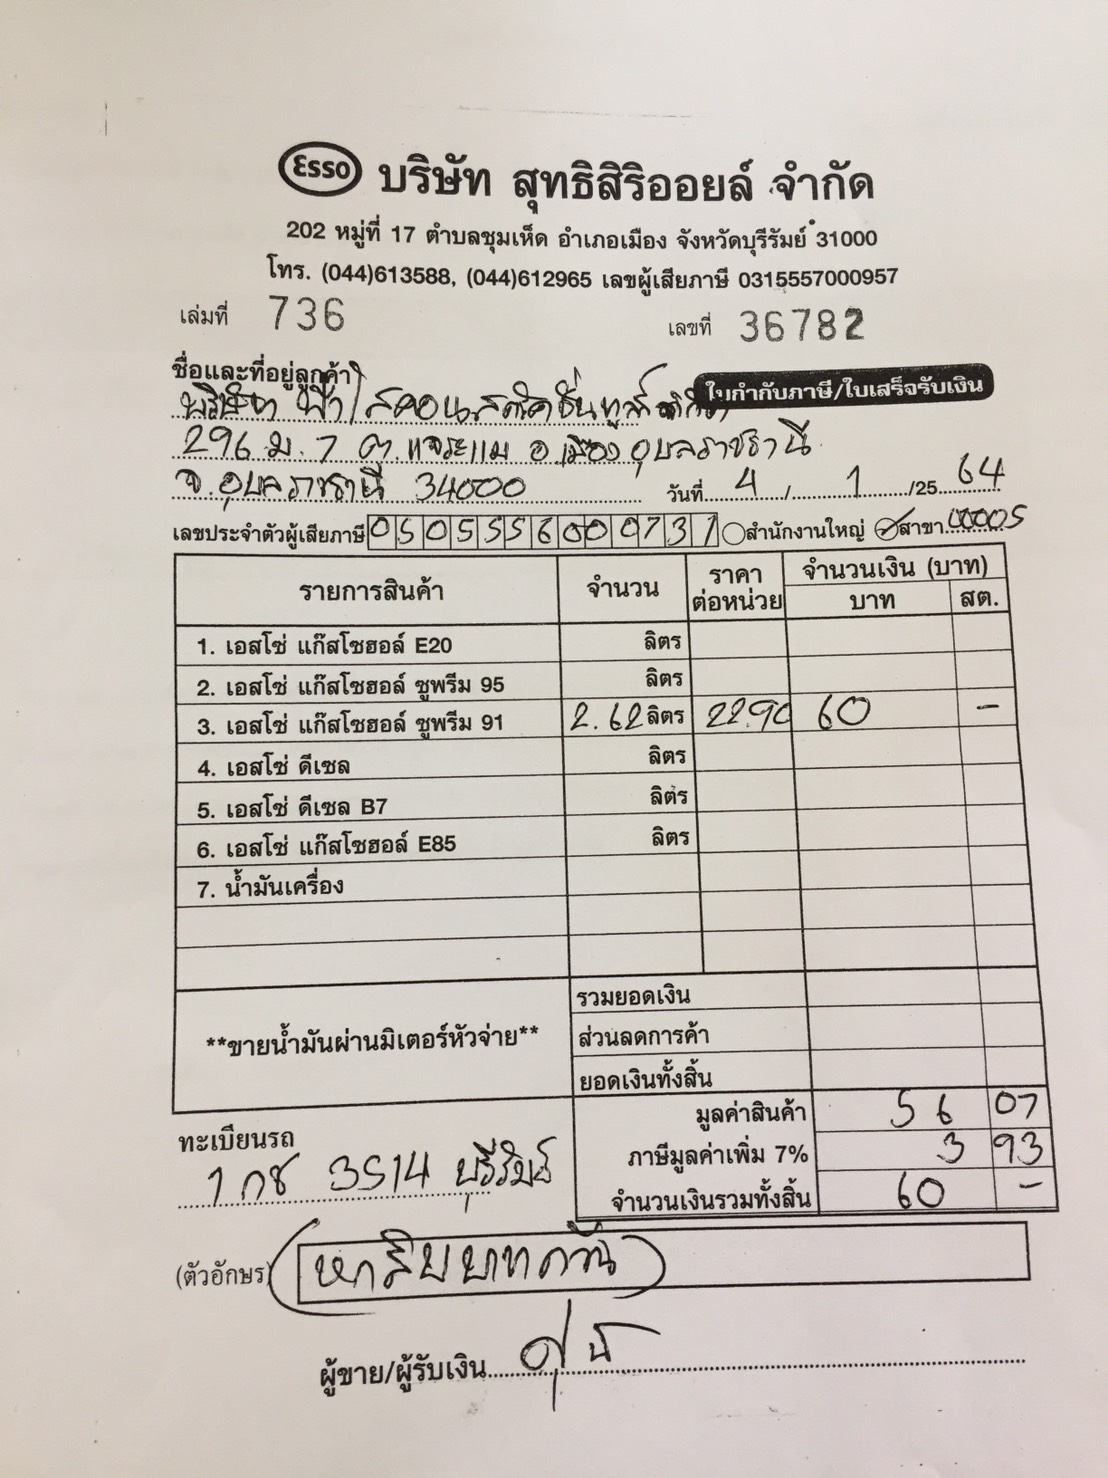 Esso บริษัท สุทธิสิริออยล์ จำกัด
202 หมู่ที่ 17 ตำบลชุมเห็ด อำเภอเมือง จังหวัดบุรีรัมย์ 31000
โทร. (044)613588, (044)612965 เลขผู้เสียภาษี 0315557000957
เล่มที่ 736 เลขที่ 36782
ชื่อและที่อยู่ลูกค้า
ใบกำกับภาษี/ใบเสร็จรับเงิน
บริษัท
296 ม. 7 ต. แจระแม อ.เมือง อุบลราชธานี
จ.อุบลราชธานี 34000 วันที่ 4 / 1 /25 64
เลขประจำตัวผู้เสียภาษี 0505556000731 สำนักงานใหญ่ สาขา 00005
รายการสินค้า จำนวน ราคาต่อหน่วย จำนวนเงิน (บาท)
บาท สต.
1. เอสโซ่ แก๊สโซฮอล์ E20 ลิตร
2. เอสโซ่ แก๊สโซฮอล์ ซูพรีม 95 ลิตร
3. เอสโซ่ แก๊สโซฮอล์ ซูพรีม 91 2.62 ลิตร 22.90 60 -
4. เอสโซ่ ดีเซล ลิตร
5. เอสโซ่ ดีเซล B7 ลิตร
6. เอสโซ่ แก๊สโซฮอล์ E85 ลิตร
7. น้ำมันเครื่อง
รวมยอดเงิน
**ขายน้ำมันผ่านมิเตอร์หัวจ่าย** ส่วนลดการค้า
ยอดเงินทั้งสิ้น
มูลค่าสินค้า 56 07
ทะเบียนรถ ภาษีมูลค่าเพิ่ม 7% 3 93
1 กช 3514 บุรีรัมย์ จำนวนเงินรวมทั้งสิ้น 60 -
(ตัวอักษร) (หกสิบบาทถ้วน)
ผู้ขาย/ผู้รับเงิน